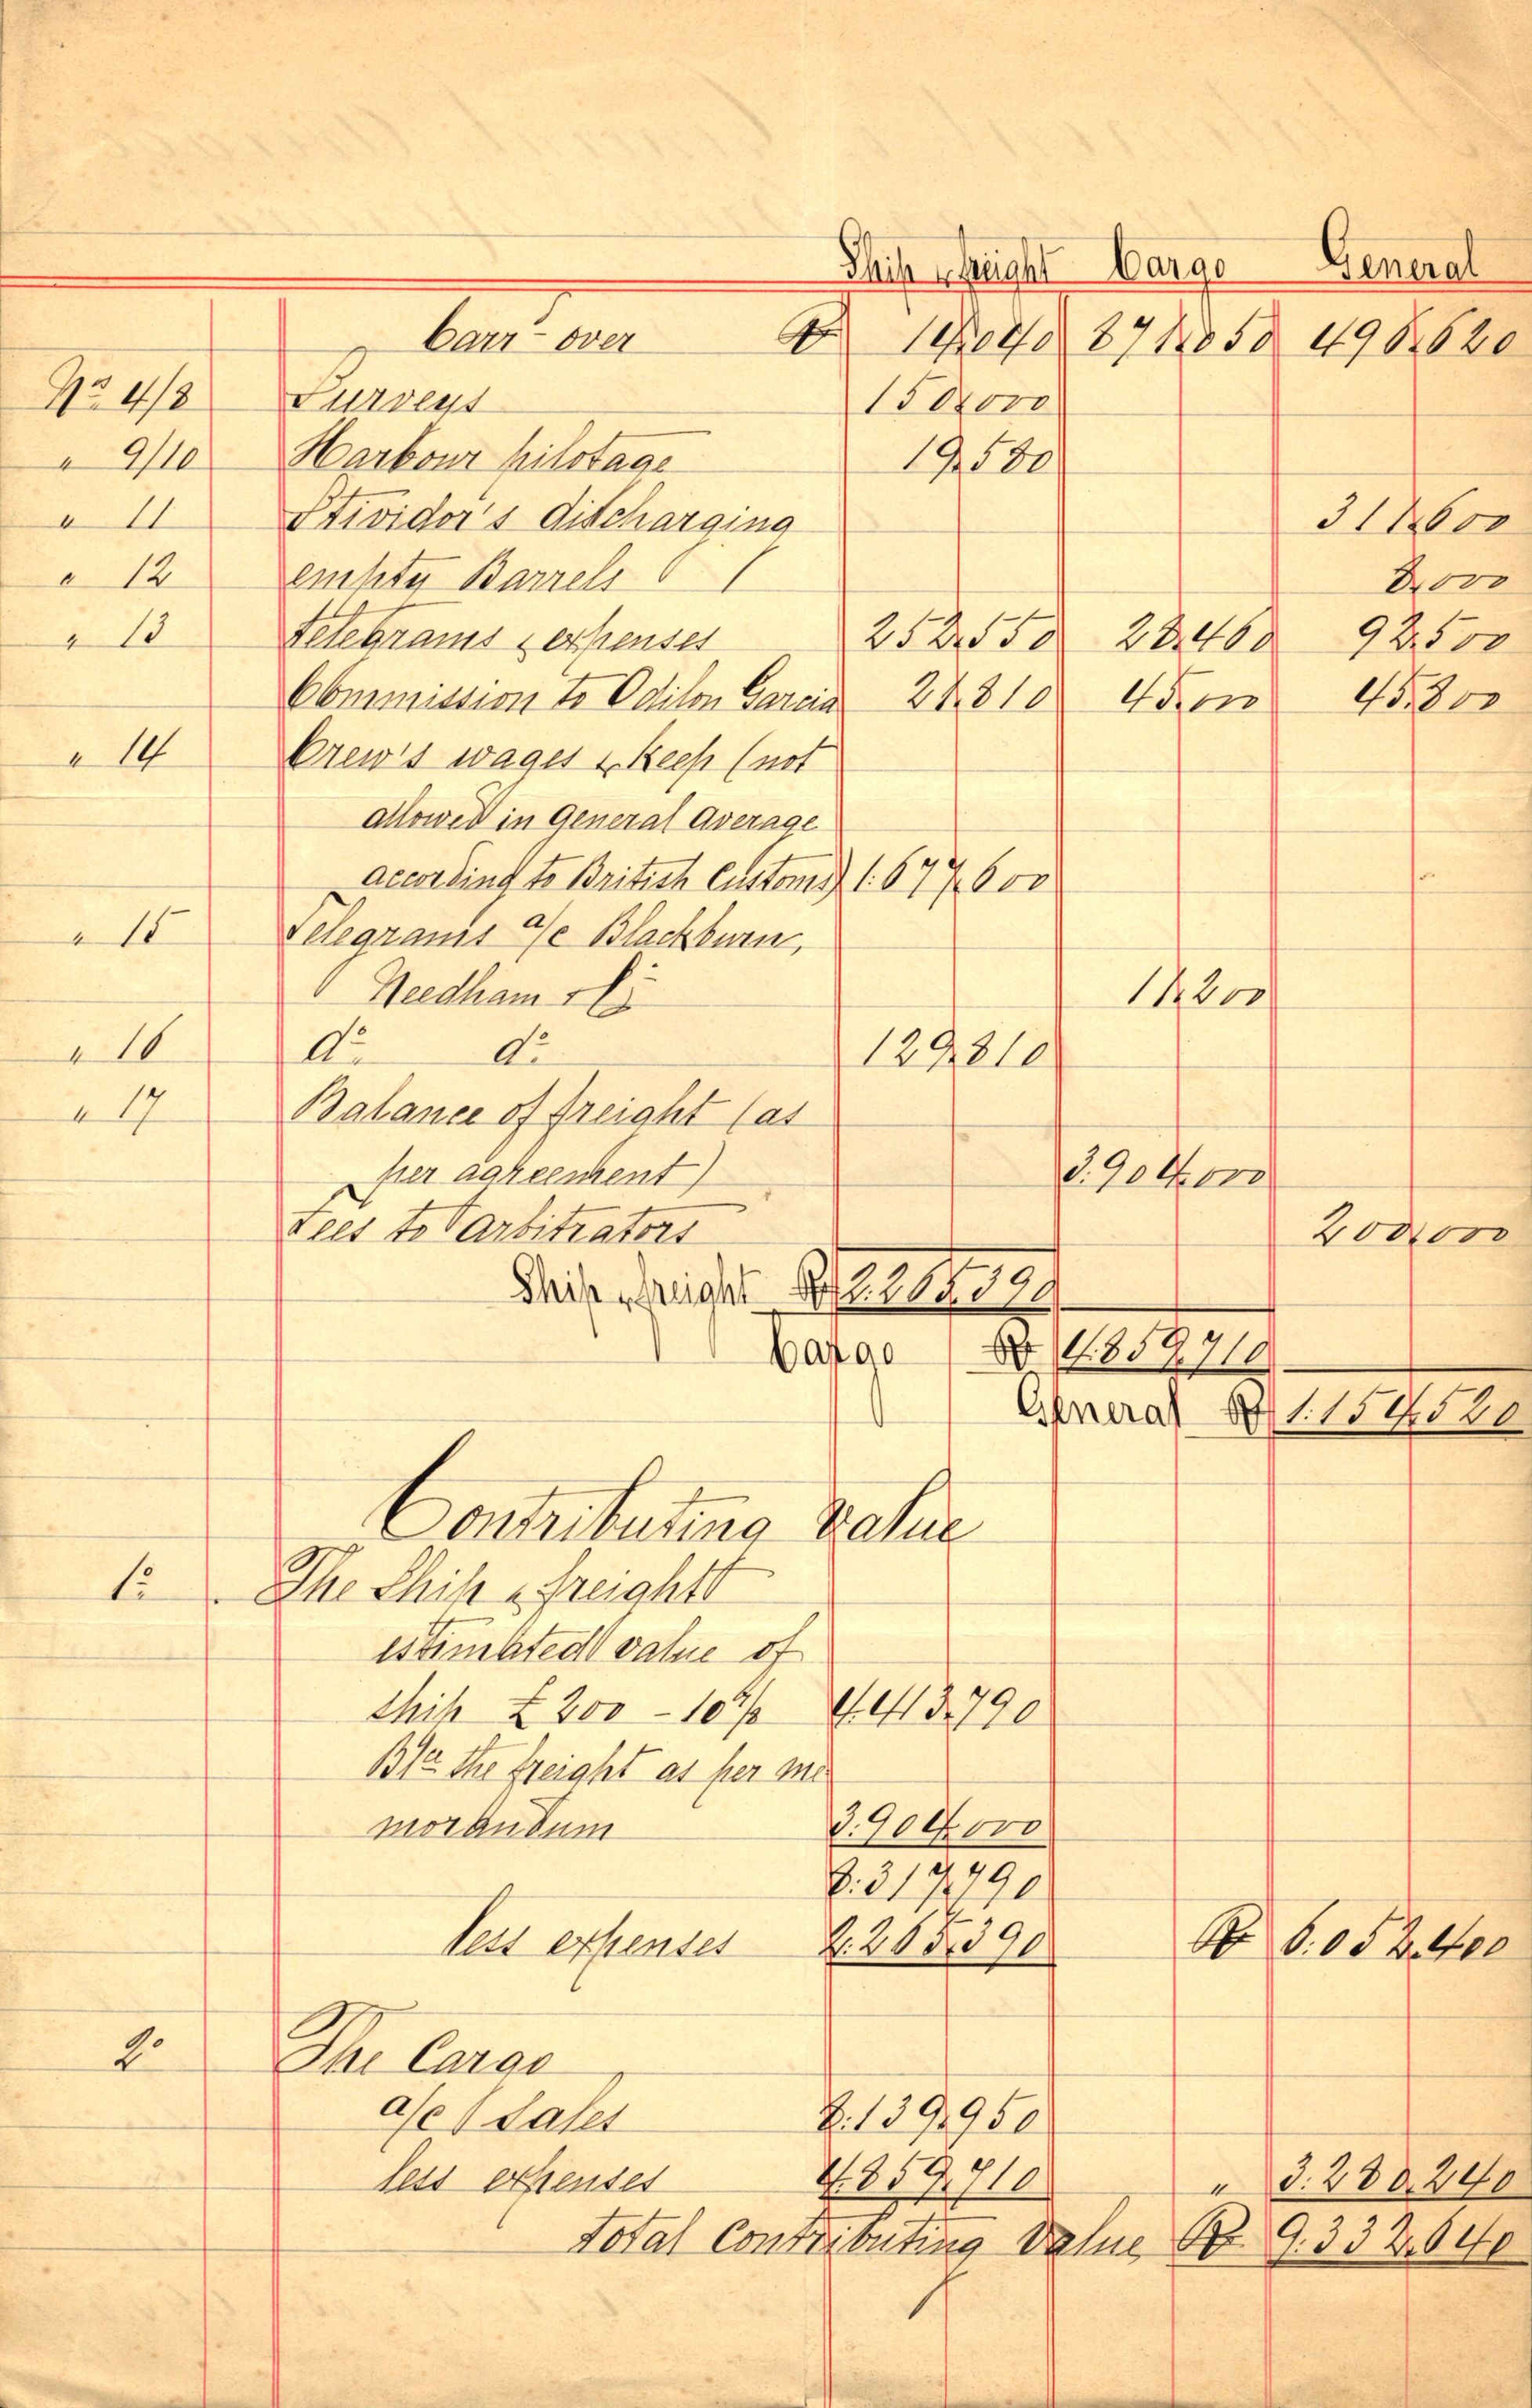 Ship & freight Cargo General
Carrd over Rs 14,040 871,050 496,620
No 4/8 Surveys 150,000
" 9/10 Harbour pilotage 19,580
" 11 Stividor's discharging 311,600
" 12 empty Barrels 8,000
" 13 Telegrams & expenses 252,550 28,460 92,500
Commission to Odilon Garcia 21,810 45,000 45,800
" 14 Crew's wages & keep (not
allowed in General Average
according to British Customs) 1.677,600
" 15 Telegrams a/c Blackburn,
Needham & Co 11,200
" 16 do do 129,810
" 17 Balance of freight (as
per agreement) 3.904,000
Fees to Arbitrators 200,000
Ship & freight Rs 2.265,390
Cargo Rs 4.859,710
General Rs 1.154,520
Contributing Value
1o The Ship & freight
estimated value of
ship £ 200 - 10% 4.413,790
B/ce the freight as per me
morandum 3.904,000
8.317,790
less expenses 2.265,390 Rs 6.052,400
2o The Cargo
a/c Sales 8.139,950
less expenses 4.859,710 " 3.280,240
Total Contributing Value Rs 9.332,640